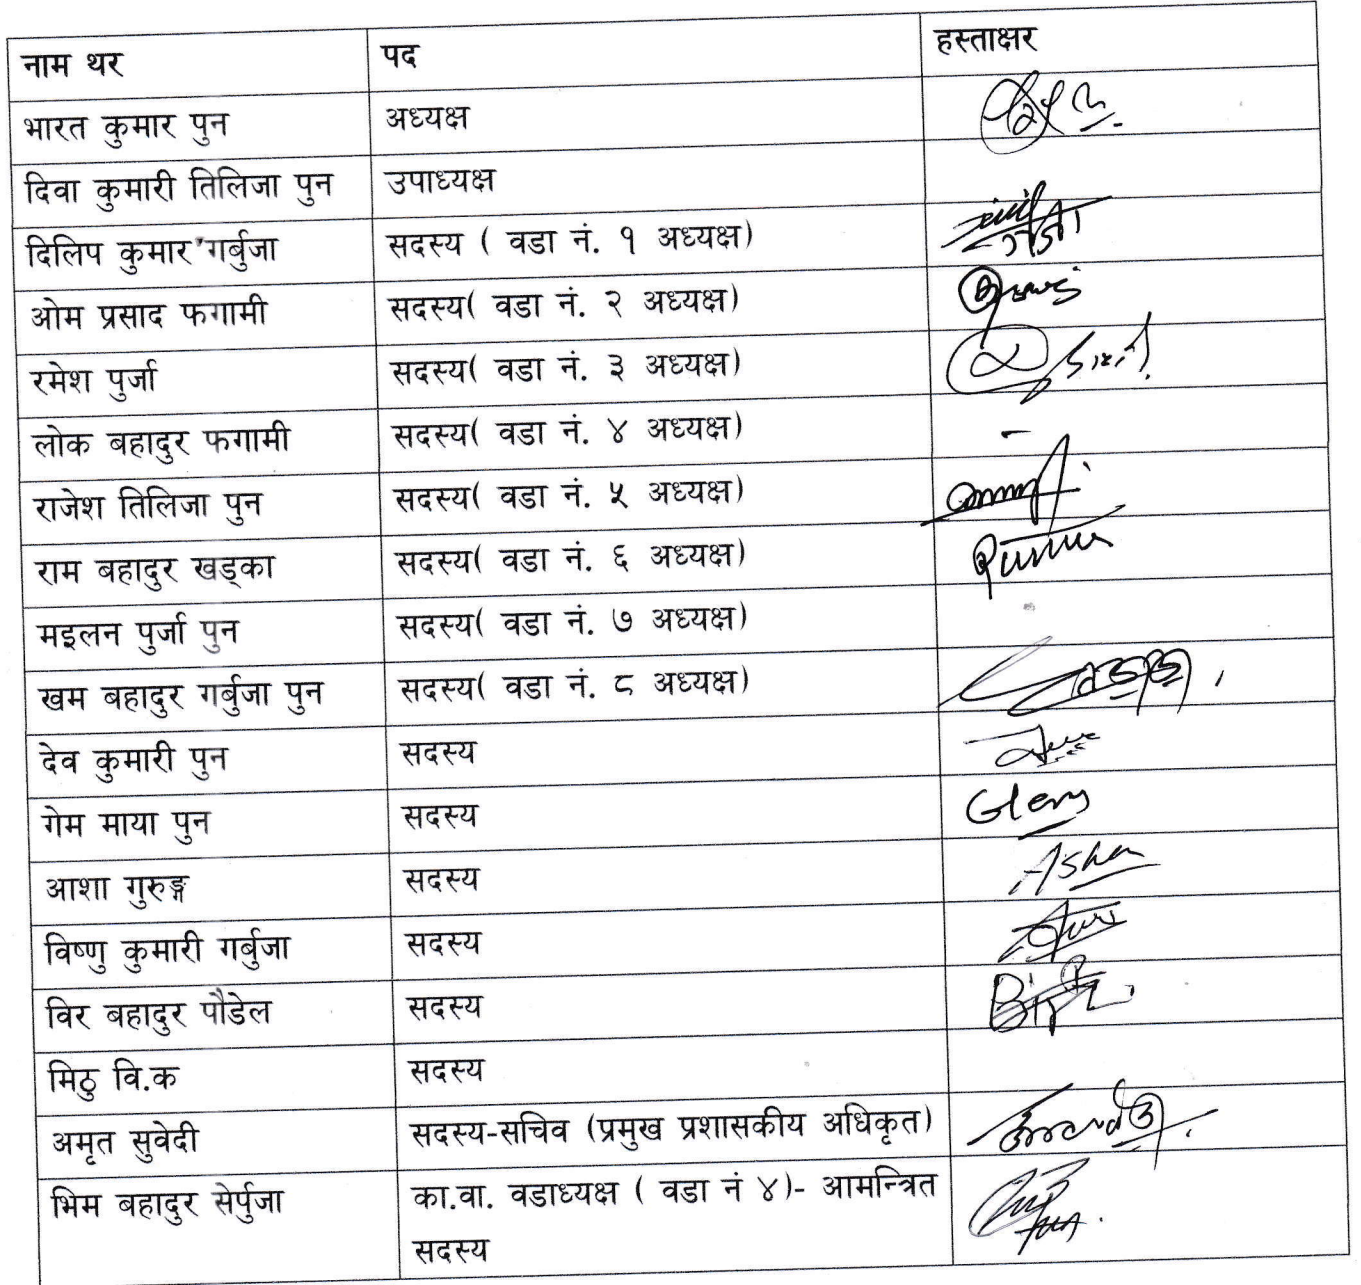 नाम थर पद हस्ताक्षर
भारत कुमार पुन अध्यक्ष
दिवा कुमारी तिलिजा पुन उपाध्यक्ष
दिलिप कुमार गर्बुजा सदस्य ( वडा नं. १ अध्यक्ष)
ओम प्रसाद फगामी सदस्य( वडा नं. २ अध्यक्ष)
रमेश पुर्जा सदस्य( वडा नं. ३ अध्यक्ष)
लोक बहादुर फगामी सदस्य( वडा नं. ४ अध्यक्ष) -
राजेश तिलिजा पुन सदस्य( वडा नं. ५ अध्यक्ष)
राम बहादुर खड्का सदस्य( वडा नं. ६ अध्यक्ष)
मइलन पुर्जा पुन सदस्य( वडा नं. ७ अध्यक्ष)
खम बहादुर गर्बुजा पुन सदस्य( वडा नं. ८ अध्यक्ष)
देव कुमारी पुन सदस्य
गेम माया पुन सदस्य
आशा गुरुङ्ग सदस्य Asha
विष्णु कुमारी गर्बुजा सदस्य
विर बहादुर पौडेल सदस्य
मिठु वि.क सदस्य
अमृत सुवेदी सदस्य-सचिव (प्रमुख प्रशासकीय अधिकृत)
भिम बहादुर सेर्पुजा का.वा. वडाध्यक्ष ( वडा नं ४)- आमन्त्रित
सदस्य